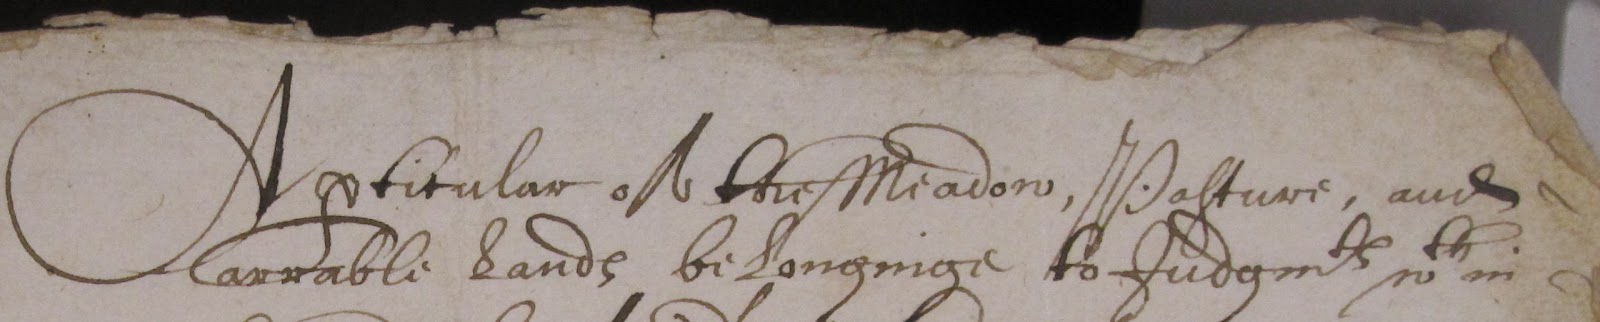 A pticular of the Meadow, Pasture, and
arrable Lands belonginge to Judgmts wth in